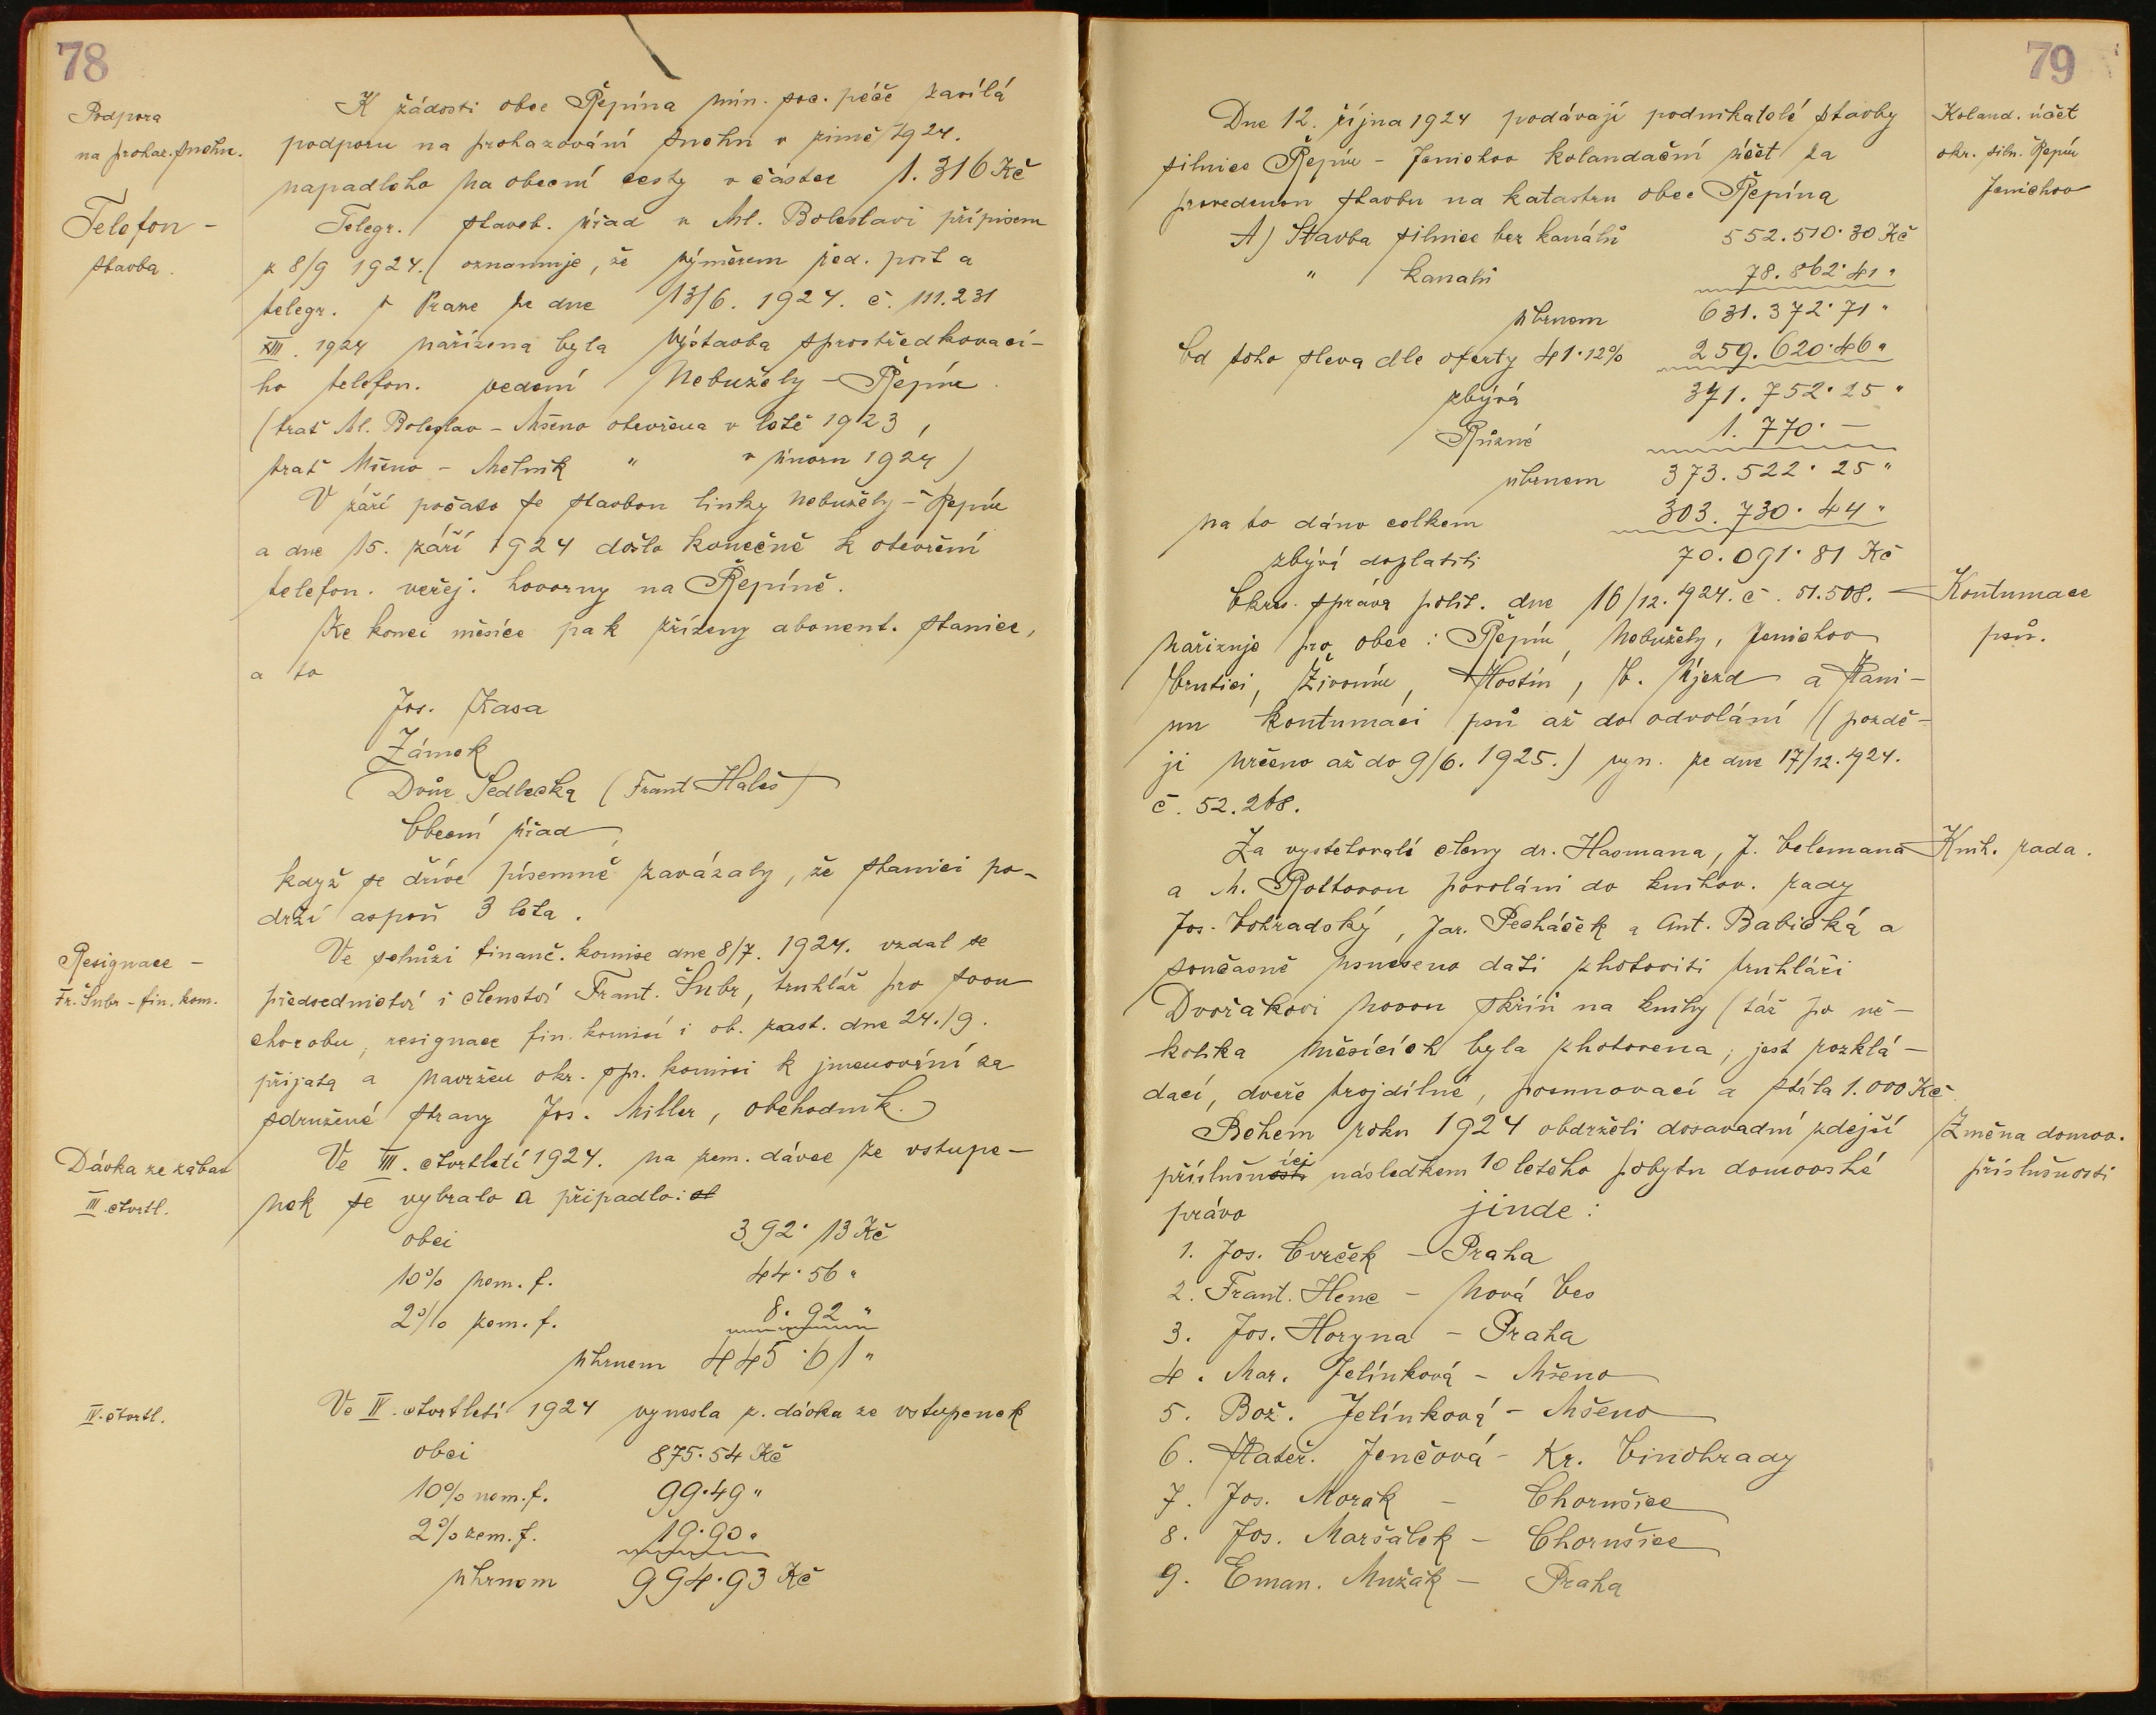 78
Podpora
na prohaz. sněhu.
K žádosti obce Řepína min. soc. péče zasílá
podporu na prohazování sněhu v zimě 1924.
napadlého na obecní cesty v částce 1.316 Kč
Telefon -
stavba.
Telegr. staveb. úřad v Ml. Boleslavi přípisem
z 8/9 1924. oznamuje, že výměrem řed. pošt a
telegr. v Praze ze dne 13/6. 1924. č. 111.231
XIII. 1924 nařízena byla výstavba sprostředkovací-
ho telefon. vedení Nebužely - Řepín.
(trať Ml. Boleslav - Mšeno otevřena v létě 1923,
trať Mšeno - Mělník " v únoru 1924)
V září počato se stavbou linky Nebužely - Řepín
a dne 15. září 1924 došlo konečně k otevření
telefon. veřej. hovorny na Řepíně.
Ke konci měsíce pak zřízeny abonent. stanice,
a to
Jos. Kasa
Zámek
Dvůr Sedlecká (Frant Haleš)
Obecní úřad,
když se dříve písemně zavázaly, že stanici po-
drží aspoň 3 léta.
Resignace -
Fr. Šubr - fin. kom.
Ve schůzi finanč. komise dne 8/7. 1924. vzdal se
předsednictví i členství Frant. Šubr, truhlář pro svou
chorobu, resignace fin. komisí i ob. zast. dne 24./9.
přijata a navržen okr. spr. komisi k jmenování za
sdružené strany Jos. Miller, obchodník.
Dávka ze zábav
III. čtvrtl.
Ve III. čtvrtletí 1924. na zem. dávce ze vstupe-
nek se vybralo a připadlo:
obci 392·13 Kč
10% nem. f. 44·56 "
2% zem. f. 8·92 "
úhrnem 445·61 "
IV. čtvrtl.
Ve IV. čtvrtletí 1924 vynesla z. dávka ze vstupenek
obci 875·54 Kč
10% nem. f. 99·49 "
2% zem. f. 19·90 "
úhrnem 994·93 Kč
79
Dne 12. října 1924 podávají podnikatelé stavby
silnice Řepín - Jenichov kolaudační účet za
provedenou stavbu na katastru obce Řepína
Kolaud. účet
okr. siln. Řepín
Jenichov
A) Stavba silnice bez kanálů 552.510·30 Kč
" kanálů 78.862·41 "
úhrnem 631.372·71 "
Od toho sleva dle oferty 41·12% 259.620·46 "
zbývá 371.752·25 "
Různé 1.770·—
úhrnem 373.522·25 "
na to dáno celkem 303.730·44 "
zbývá doplatiti 70.091·81 Kč
Okres. správa polit. dne 16/12. 1924. č. 51.508. -
Kontumace
psů.
nařizuje pro obce: Řepín, Nebužely, Jenichov
Vrutici, Živonín, Hostín, V. Újezd a Kani-
nu kontumaci psů až do odvolání (pozdě-
ji určeno až do 9/6. 1925.) vyn. ze dne 17/12. 1924.
č. 52.268.
Za vystěhovalé členy dr. Hasmana, J. Velemana
Knih. rada.
a M. Roltovou povoláni do knihov. rady
Jos. Vohradský, Jar. Pecháček a Ant. Babická a
současně usneseno dáti zhotoviti truhláři
Dvořákovi novou skříň na knihy (táž po ně-
kolika měsících byla zhotovena; jest rozklá-
dací, dveře trojdílné, posunovací a stála 1.000 Kč
Během roku 1924 obdrželi dosavadní zdejší
Změna domov.
příslušnosti
příslušníci následkem 10 letého pobytu domovské
právo jinde:
1. Jos. Cvrček - Praha
2. Frant. Henc - Nová Ves
3. Jos. Horyna - Praha
4. Mar. Jelínková - Mšeno
5. Bož. Jelínková - Mšeno
6. Kateř. Jenčová - Kr. Vinohrady
7. Jos. Morák - Chorušice
8. Jos. Maršálek - Chorušice
9. Eman. Mužák - Praha